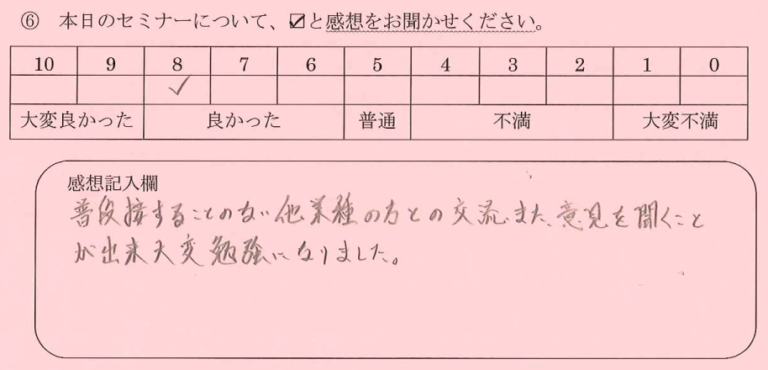 ⑥ 本日のセミナーについて、☑と感想をお聞かせください。
10 9 8 7 6 5 4 3 2 1 0
✓
大変良かった 良かった 普通 不満 大変不満
感想記入欄
普段接することのない他業種の方との交流、また、意見を聞くこと
が出来大変勉強になりました。